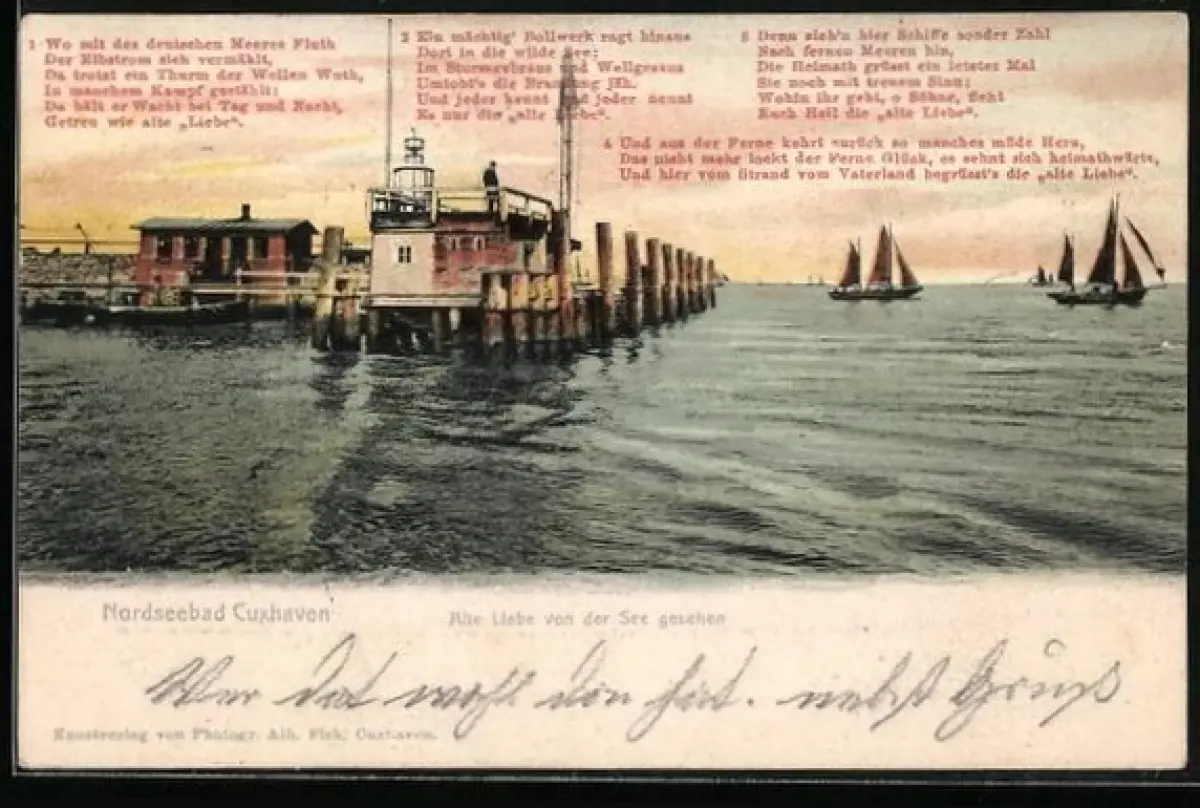 1 Wo mit des deutschen Meeres Fluth
Der Elbstrom sich vermählt,
Da trotzt ein Thurm der Wellen Wuth,
In manchem Kampf gestählt;
Da hält er Wacht bei Tag und Nacht,
Getreu wie alte „Liebe".
2 Ein mächtig' Bollwerk ragt hinaus
Dort in die wilde See;
Im Sturmesbraus und Wellgesaus
Umtobt's die Brandung jäh.
Und jeder kennt und jeder nennt
Es nur die „alte Liebe".
3 Denn zieh'n hier Schiffe sonder Zahl
Nach fernen Meeren hin,
Die Heimath grüsst ein letztes Mal
Sie noch mit treuem Sinn;
Wohin ihr geht, o Söhne, fleht
Euch Heil die „alte Liebe".
4 Und aus der Ferne kehrt zurück so manches müde Herz,
Das nicht mehr lockt der Ferne Glück, es sehnt sich heimathwärts,
Und hier vom Strand vom Vaterland begrüsst's die „alte Liebe".
Nordseebad Cuxhaven
Alte Liebe von der See gesehen
Wer dat wohl don het. nebst Gruß
Kunstverlag von Photogr. Alb. Fick, Cuxhaven.